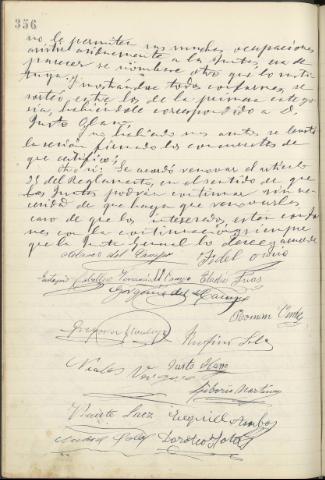 356
no le permiten sus muchas ocupaciones
asistir asiduamente a las Juntas, era de
parecer se nombrase otro que lo susti-
tuya. Y mostrándose todos conformes, se
sorteó entre los de la primera catego-
ría, habiéndole correspondido a D.
Justo
Y no habiendo mas asuntos se levantó
la sesión firmando los concurrentes de
que certifico.
Se acordó renovar el artículo
25 del Reglamento, en el sentido de que
las Juntas podrán continuar sin ne-
cesidad de que haya que renovarlas
caso de que los interesados, estén confor-
mes con la continuación y siempre
que la Junta General no desee
del Campo
Fidel
Caballero Fernando del Campo Eladio Frias
Gregorio del Campo
Román
Gregorio
Rufino
Nicolás
Justo
Liborio Martínez
Vicente Saez Ezequiel
Doroteo Soto